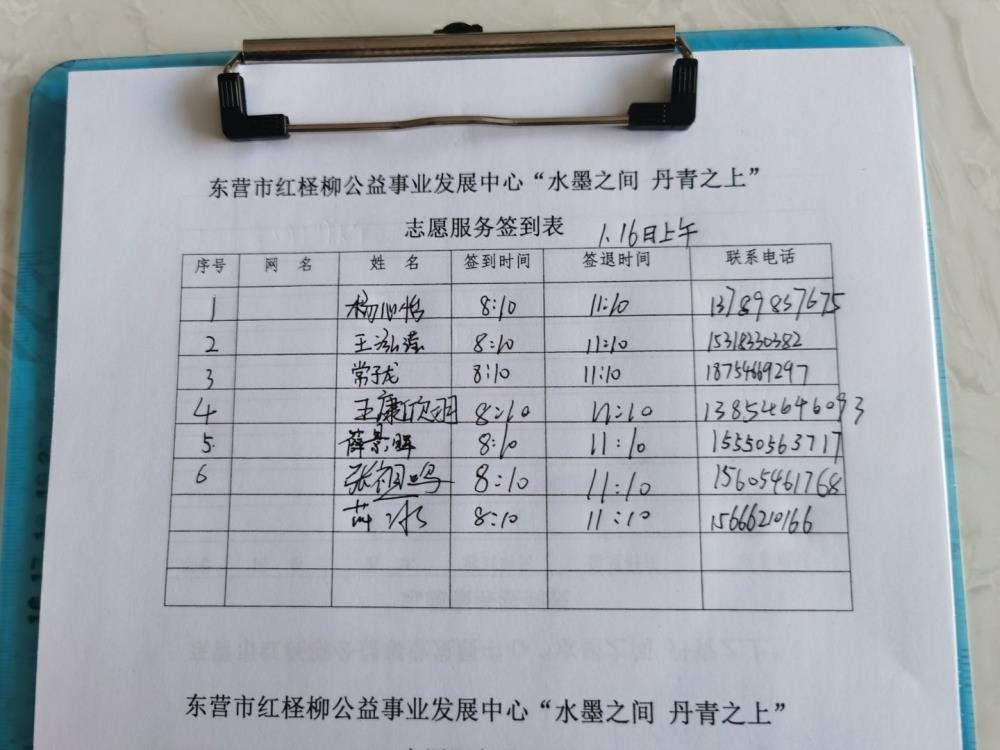 东营市红柽柳公益事业发展中心“水墨之间 丹青之上”
志愿服务签到表 1.16日上午
序号 网 名 姓 名 签到时间 签退时间 联系电话
1 杨心怡 8:10 11:10 13789837675
2 王泓滢 8:10 11:10 15318330382
3 常子龙 8:10 11:10 18754669297
4 王康欣玥 8:10 11:10 13854646093
5 薛景晖 8:10 11:10 15550563717
6 张祖鸣 8:10 11:10 15605461768
8:10 11:10 15666210166
东营市红柽柳公益事业发展中心“水墨之间 丹青之上”